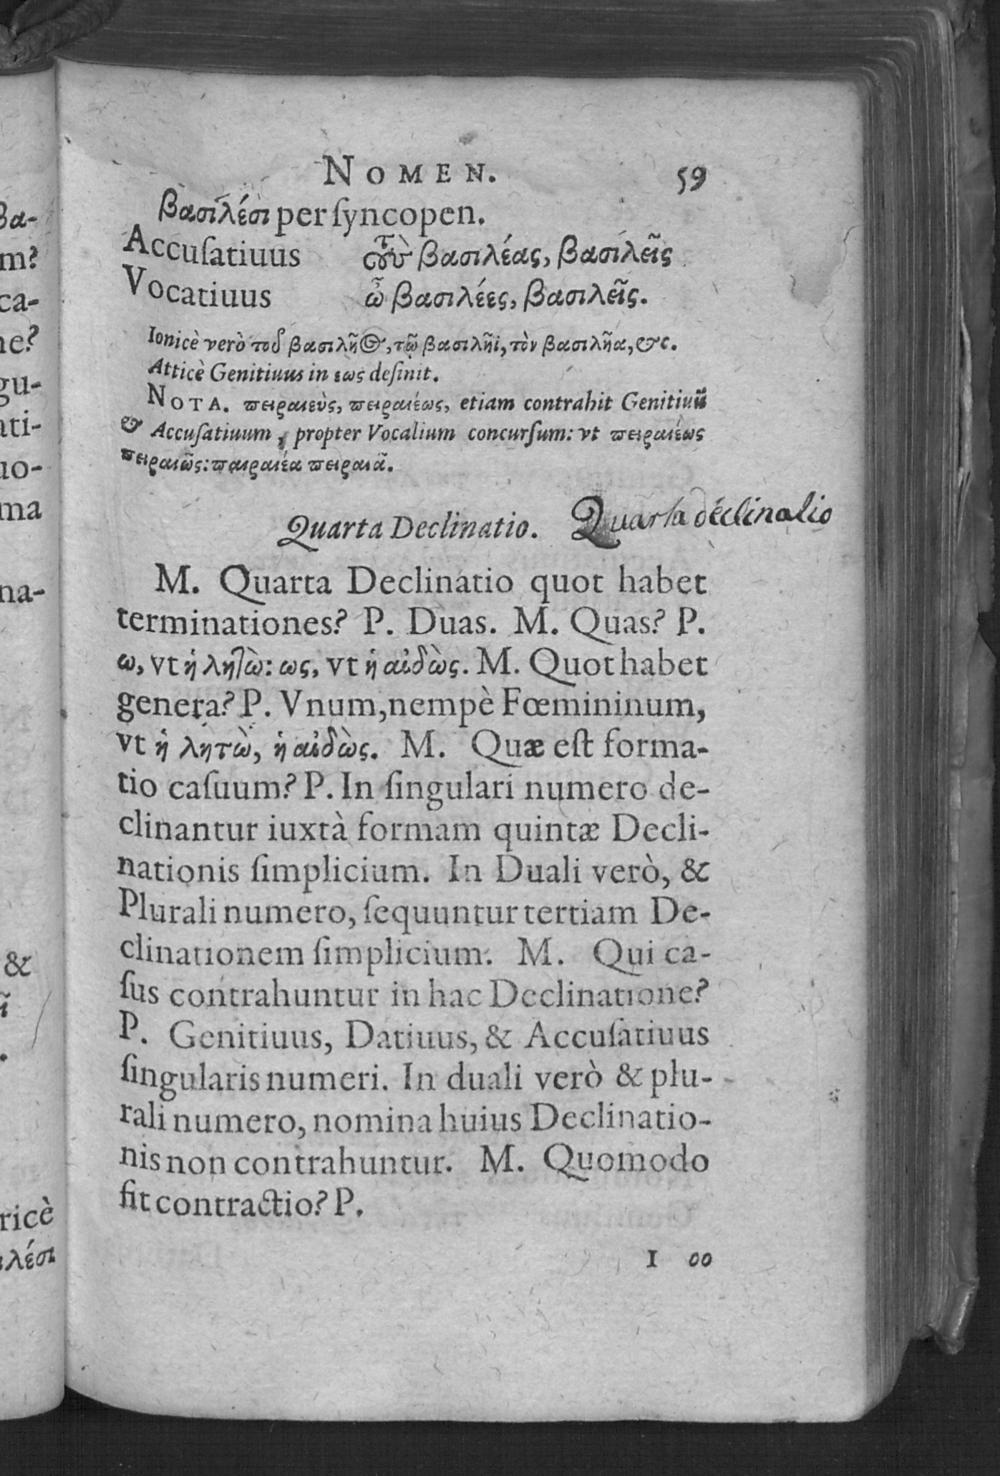 NOMEN. 59
βασιλέσι per ſyncopen.
Accuſatiuus τοὺς βασιλέας, βασιλεῖς
Vocatiuus ὦ βασιλέες, βασιλεῖς.
Ionicè verò τοῦ βασιλῆος, τῷ βασιλῆϊ, τὸν βασιλῆα, &c.
Atticè Genitiuus in εως deſinit.
NOTA. πειραιεὺς, πειραιέως, etiam contrahit Genitiuū
& Accuſatiuum, propter Vocalium concurſum: vt πειραιέως
πειραιῶς: παιραιέα πειραιᾶ.
Quarta Declinatio. Quarta declinatio
M. Quarta Declinatio quot habet
terminationes? P. Duas. M. Quas? P.
ω, vt ἡ λητὼ: ως, vt ἡ αἰδὼς. M. Quot habet
genera? P. Vnum, nempè Fœmininum,
vt ἡ λητὼ, ἡ αἰδὼς. M. Quæ eſt forma-
tio caſuum? P. In ſingulari numero de-
clinantur iuxtà formam quintæ Decli-
nationis ſimplicium. In Duali verò, &
Plurali numero, ſequuntur tertiam De-
clinationem ſimplicium. M. Qui ca-
ſus contrahuntur in hac Declinatione?
P. Genitiuus, Datiuus, & Accuſatiuus
ſingularis numeri. In duali verò & plu-
rali numero, nomina huius Declinatio-
nis non contrahuntur. M. Quomodo
fit contractio? P.
I οο
βα-
m?
ca-
ne?
gu-
ati-
uo-
ma
na-
&
ricè
ιλέσι